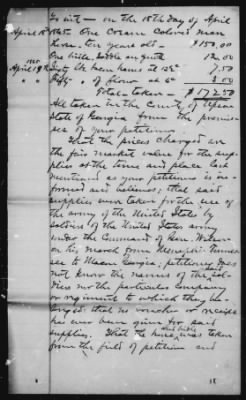 To wit - on the 18th day of April
April 18 1865 One Cream Colored man
horse - ten years old - $150.00
One bridle, saddle 12.00
April 19 1865 Sixty lbs bacon hams at 12½c 7.50
" " " Fifty " of flour at 6c 3.00
Total - taken - $172.50
All taken in the County of Upson
State of Georgia from the premi-
ses of your petitioner.
That the prices charged are
the fair market value for the sup-
plies at the time and place last
mentioned as your petitioner is in-
formed and believes; that said
supplies were taken for the use of
the army of the United States by
soldiers of the United States army
under the Command of Gen. Wilson
on his march from Memphis Tennes-
see to Macon Georgia; petitioner does
not know the names of the said sol-
diers nor the particular company
or regiment to which they be-
longed; that no voucher or receipt
has ever been given for said
supplies. That the horse and bridle was taken
from the field of petitioner and
18